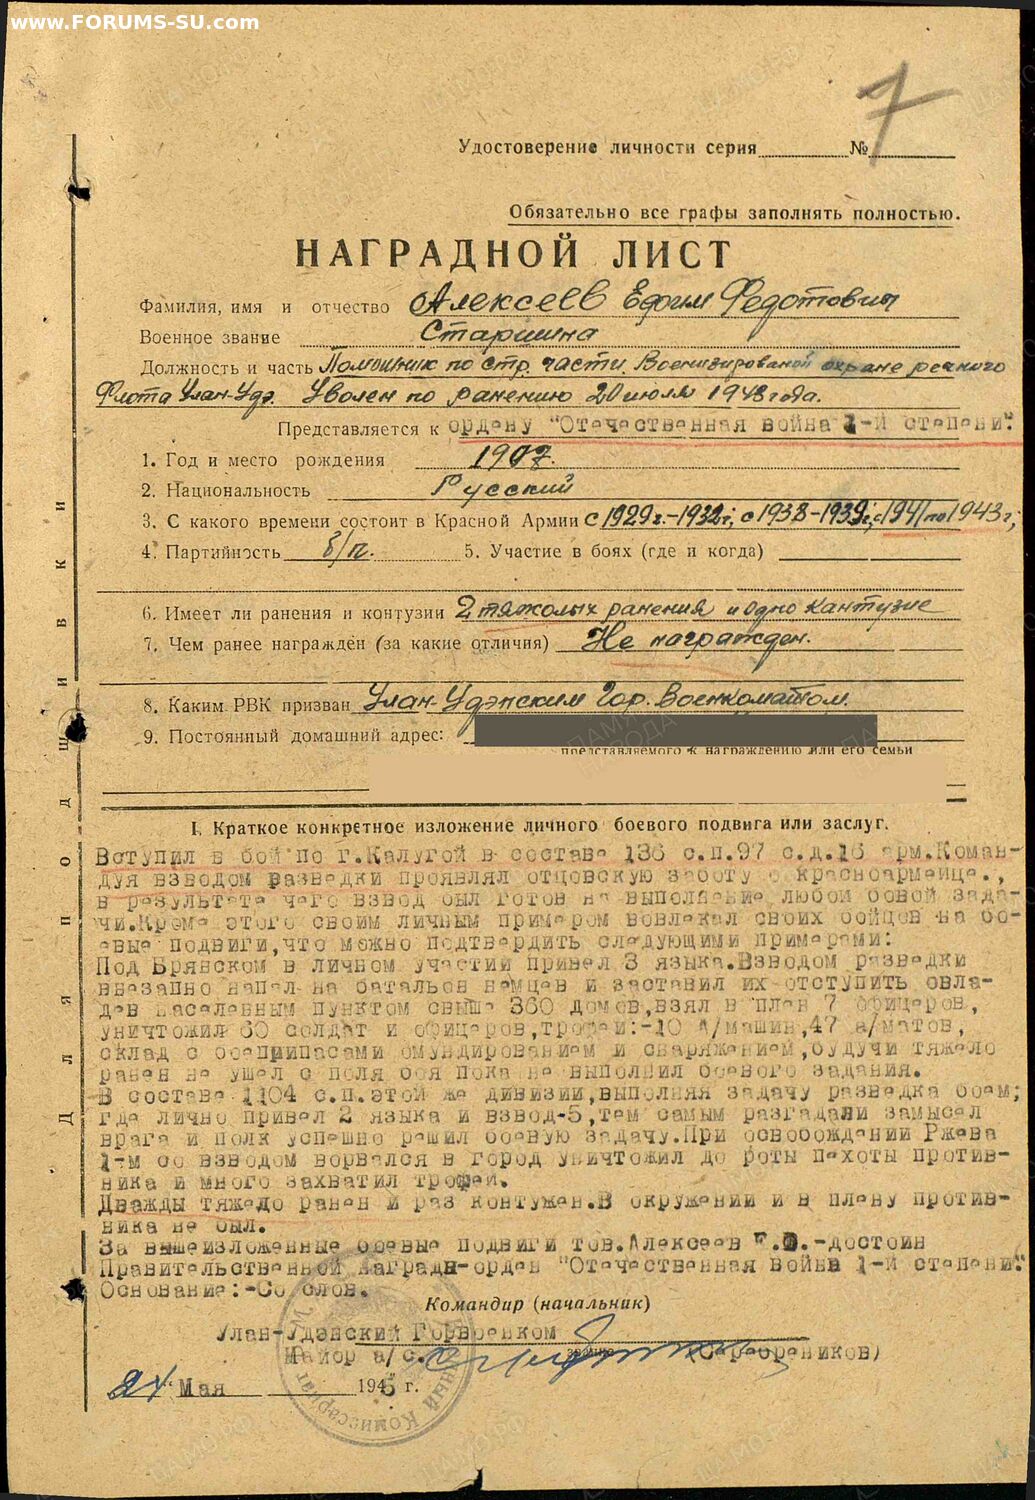 www.FORUMS-SU.com
7
Удостоверение личности серия №
Обязательно все графы заполнять полностью.
НАГРАДНОЙ ЛИСТ
Фамилия, имя и отчество Алексеев Ефим Федотович
Военное звание Старшина
Должность и часть Помошник по стр. части Военизированой охране речного
Флота Улан-Удэ. Уволен по ранению 20 июля 1943 года.
Представляется к ордену "Отечественная война 1-й степени".
1. Год и место рождения 1907.
2. Национальность Русский
3. С какого времени состоит в Красной Армии с 1929г.-1932г; с 1938-1939г; с 1941 по 1943г;
4. Партийность б/п. 5. Участие в боях (где и когда)
6. Имеет ли ранения и контузии 2 тяжолых ранения и одно кантузие
7. Чем ранее награжден (за какие отличия) Не награжден.
8. Каким РВК призван Улан-Удэнским Гор. Военкоматом.
9. Постоянный домашний адрес:
представляемого к награждению или его семьи
Для подшивки
I. Краткое конкретное изложение личного боевого подвига или заслуг.
Вступил в бой по г.Калугой в составе 136 с.п.97 с.д.16 арм.Коман-
дуя взводом разведки проявлял отцовскую заботу о красноармейце.,
в результате чего взвод был готов на выполнение любой боевой зада-
чи.Кроме этого своим личным примером вовлекал своих бойцов на бо-
евые подвиги,что можно подтвердить следующими примерами:
Под Брянском в личном участии привел 3 языка.Взводом разведки
внезапно напал на батальон немцев и заставил их отступить овла-
дев населенным пунктом свыше 360 домов,взял в плен 7 офицеров,
уничтожил 60 солдат и офицеров,трофеи:-10 а/машин,47 а/матов,
склад с боеприпасами омундированием и снаряжением,будучи тяжело
ранен не ушел с поля боя пока не выполнил боевого задания.
В составе 1104 с.п.этой же дивизии,выполняя задачу разведка боем;
где лично привел 2 языка и взвод-5,тем самым разгадали замысел
врага и полк успешно решил боевую задачу.При освобождении Ржева
1-м со взводом ворвался в город уничтожил до роты пехоты против-
ника и много захватил трофей.
Дважды тяжело ранен и раз контужен.В окружении и в плену против-
ника не был.
За вышеизложенные боевые подвиги тов.Алексеев Е.Ф.-достоин
Правительственной награды-орден "Отечественная война 1-й степени".
Основание:-Со слов.
Командир (начальник)
Улан-Удэнский Горвоенком
Майор а/с. звание (Серебреников)
24 Мая 1945 г.